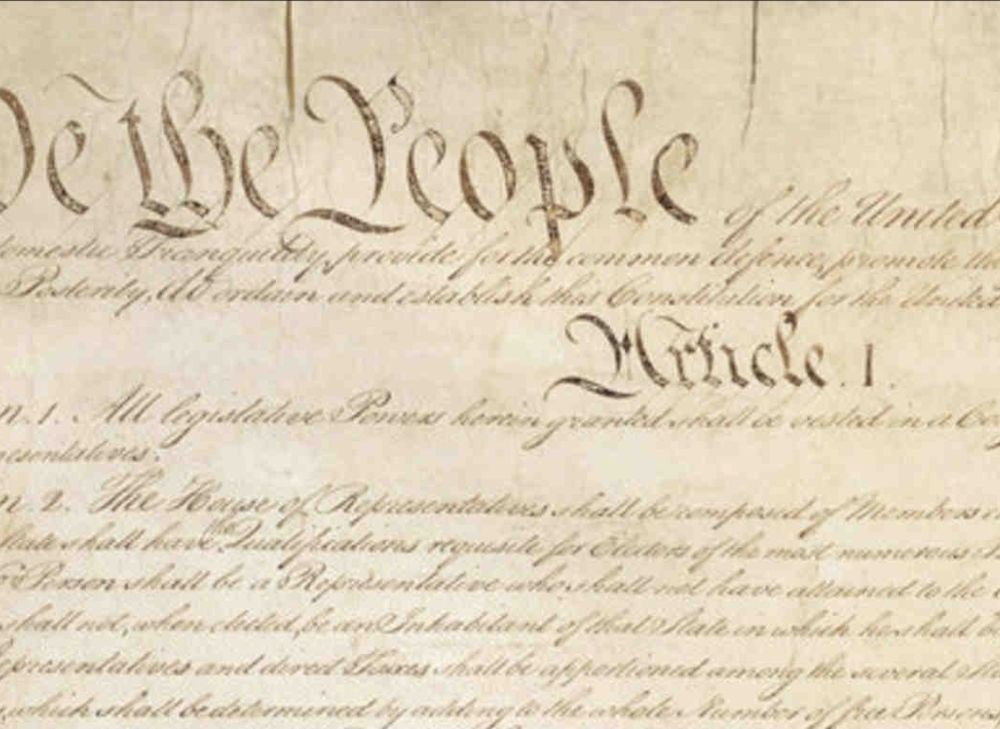 We the People of the United
domestic Tranquility, provide for the common defence, promote the
Posterity, do ordain and establish this Constitution for the United
Article. I.
n. 1. All legislative Powers herein granted shall be vested in a Con
resentatives.
n. 2. The House of Representatives shall be composed of Members
State shall have Qualifications requisite for Electors of the most numerous
Person shall be a Representative who shall not have attained to the
shall not, when elected, be an Inhabitant of that State in which he shall b
epresentatives and direct Taxes shall be apportioned among the several Sta
which shall be determined by adding to the whole Number of free Persons,